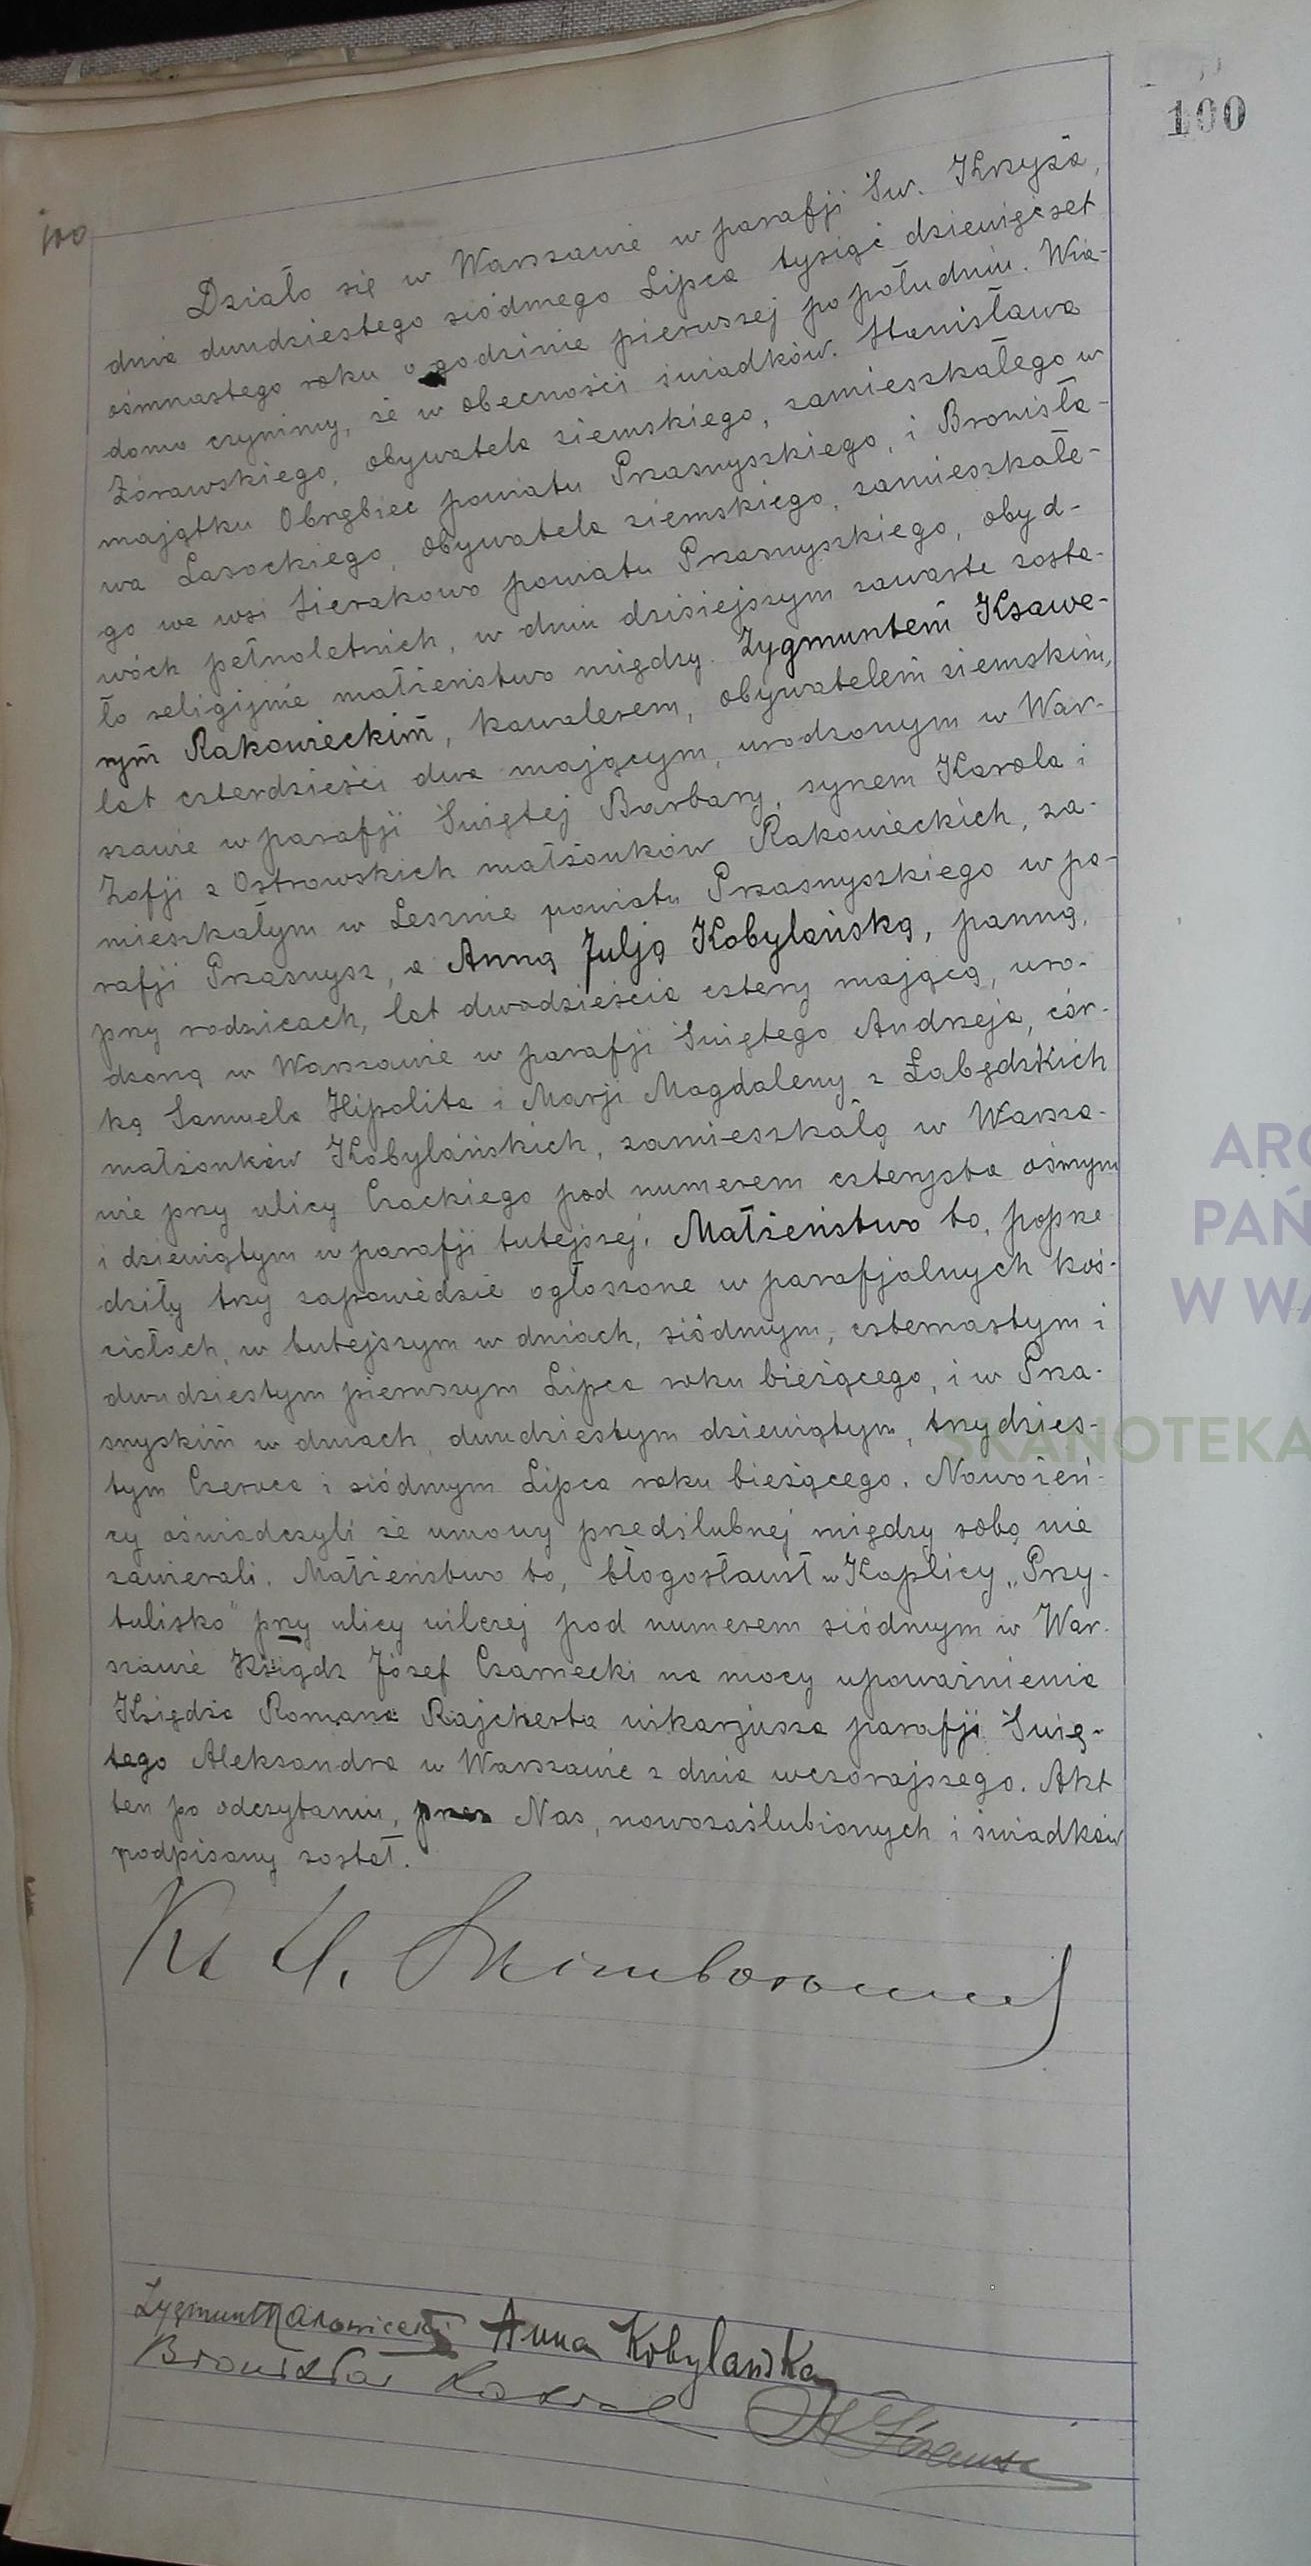 100
100
Działo się w Warszawie w parafji Św. Krzyża,
dnia dwudziestego siódmego Lipca tysiąc dziewięćset
ośmnastego roku o godzinie pierwszej popołudniu. Wia-
domo czynimy, że w obecności świadków. Stanisława
Żórawskiego, obywatela ziemskiego, zamieszkałego w
majątku Obrębiec powiatu Przasnyszkiego, i Bronisła-
wa Lasockiego, obywatela ziemskiego, zamieszkałe-
go we wsi Sierakowo powiatu Przasnyszkiego, obyd-
wóch pełnoletnich, w dniu dzisiejszym zawarte zosta-
ło religijnie małżeństwo między. Zygmuntem Ksawe-
rym Rakowieckim, kawalerem, obywatelem ziemskim,
lat czterdzieści dwa mającym, urodzonym w War-
szawie w parafji Świętej Barbary, synem Karola i
Zofji z Ostrowskich małżonków Rakowieckich, za-
mieszkałym w Lesznie powiatu Przasnyszkiego w pa-
rafji Przasnysz, a Anną Julją Kobylańską, panną,
przy rodzicach, lat dwadzieścia cztery mającą, uro-
dzoną w Warszawie w parafji Świętego Andrzeja, cór-
ką Samuela Hipolita i Marji Magdaleny z Łabędzkich
małżonków Kobylańskich, zamieszkałą w Warsza-
wie przy ulicy Czackiego pod numerem czterysta ósmym
i dziewiątym w parafji tutejszej. Małżeństwo to, poprze
dziły trzy zapowiedzie ogłoszone w parafjalnych koś-
ciołach, w tutejszym w dniach, siódmym, czternastym i
dwudziestym pierwszym Lipca roku bieżącego, i w Prza-
snyskim w dniach, dwudziestym dziewiątym, trzydzies-
tym Czerwca i siódmym Lipca roku bieżącego. Nowożeń-
cy oświadczyli że umowy przedślubnej między sobą nie
zawierali. Małżeństwo to, błogosławił w Kaplicy „Przy-
tulisko" przy ulicy wilczej pod numerem siódmym w War-
szawie Ksiądz Józef Czarnecki na mocy upoważnienia
Księdza Romana Rajcherta wikarjusza parafji Świę-
tego Aleksandra w Warszawie z dnia wczorajszego. Akt
ten po odczytaniu, przez Nas, nowozaślubionych i świadków
podpisany został.
Ks
Zygmunt Rakowiecki Anna Kobylańska
Bronisław
ARC
PAŃ
W WA
SKANOTEKA